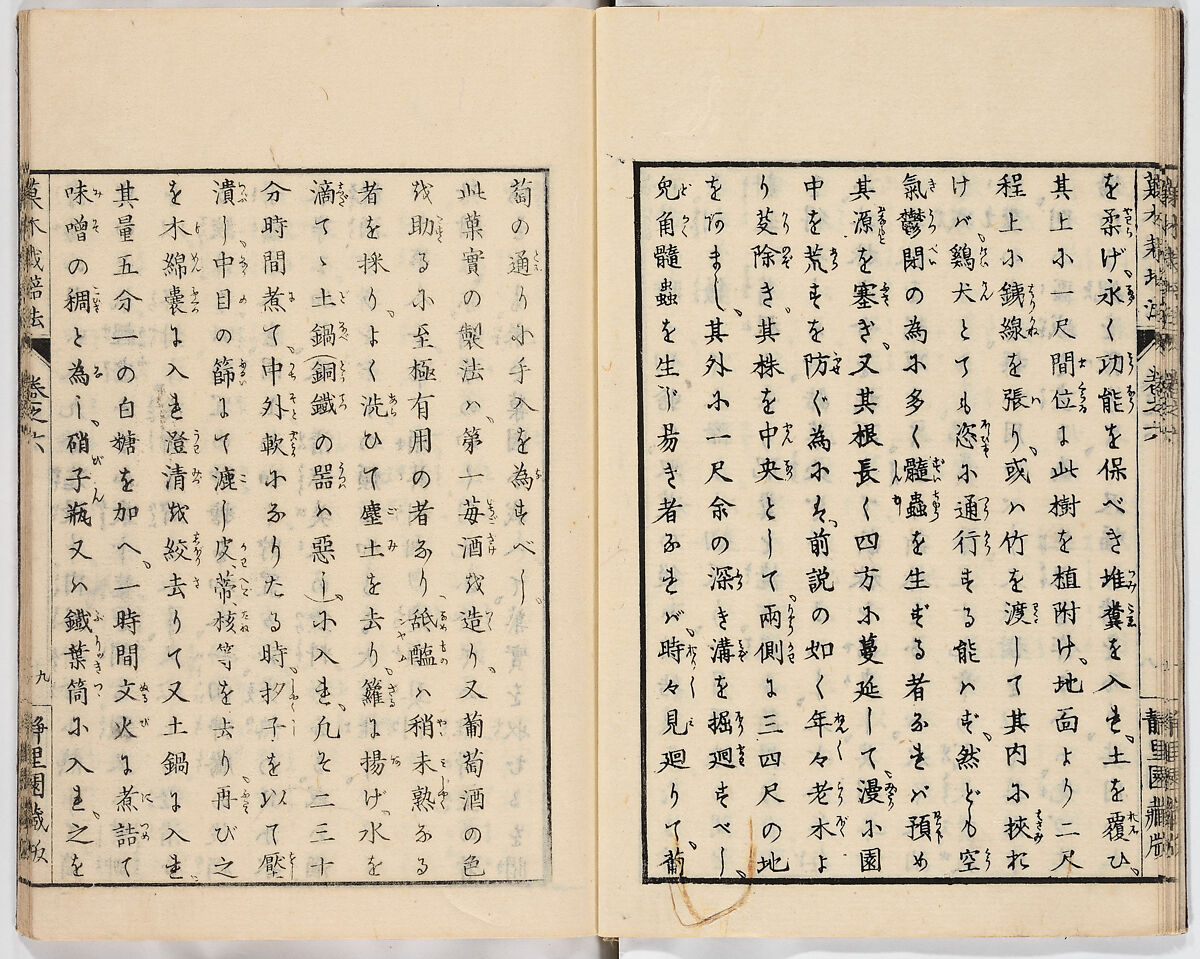 を柔げ、永く功能を保べき堆糞を入れ、土を覆ひ、
其上に一尺間位に此樹を植附け、地面より二尺
程上に銕線を張り、或ハ竹を渡して其内に挾れ
けバ、鷄犬とても恣に通行する能ハず、然ども空
氣鬱閉の為に多く髓蟲を生ずる者なれバ預め
其源を塞ぎ、又其根長く四方に蔓延して、漫に園
中を荒すを防ぐ為にハ、前説の如く年々老木よ
り芟除き、其株を中央として、兩側に三四尺の地
をあまし、其外に一尺余の深き溝を掘廻すべし、
兎角髓蟲を生じ易き者なれバ、時々見廻りて、葡
萄の通り小手入を為すべし、
此菓實の製法ハ、第一苺酒を造り、又葡萄酒の色
を助るに至極有用の者なり、舐醢ハ稍未熟なる
者を採り、よく洗ひて塵土を去り、籮に揚げ、水を
滴て、土鍋(銅鐵の器ハ惡し)に入れ、凡そ二三十
分時間煮て、中外軟になりたる時、杓子を以て壓
潰し、中目の篩にて漉し、皮、蒂、核等を去り、再び之
を木綿囊に入れ澄清を絞去りて又土鍋に入れ、
其量五分一の白糖を加へ、一時間文火に煮詰て
味噌の稠と為し、硝子瓶又ハ鐵葉筒に入れ、之を
菓木栽培法
卷之六
九
靜里園藏版